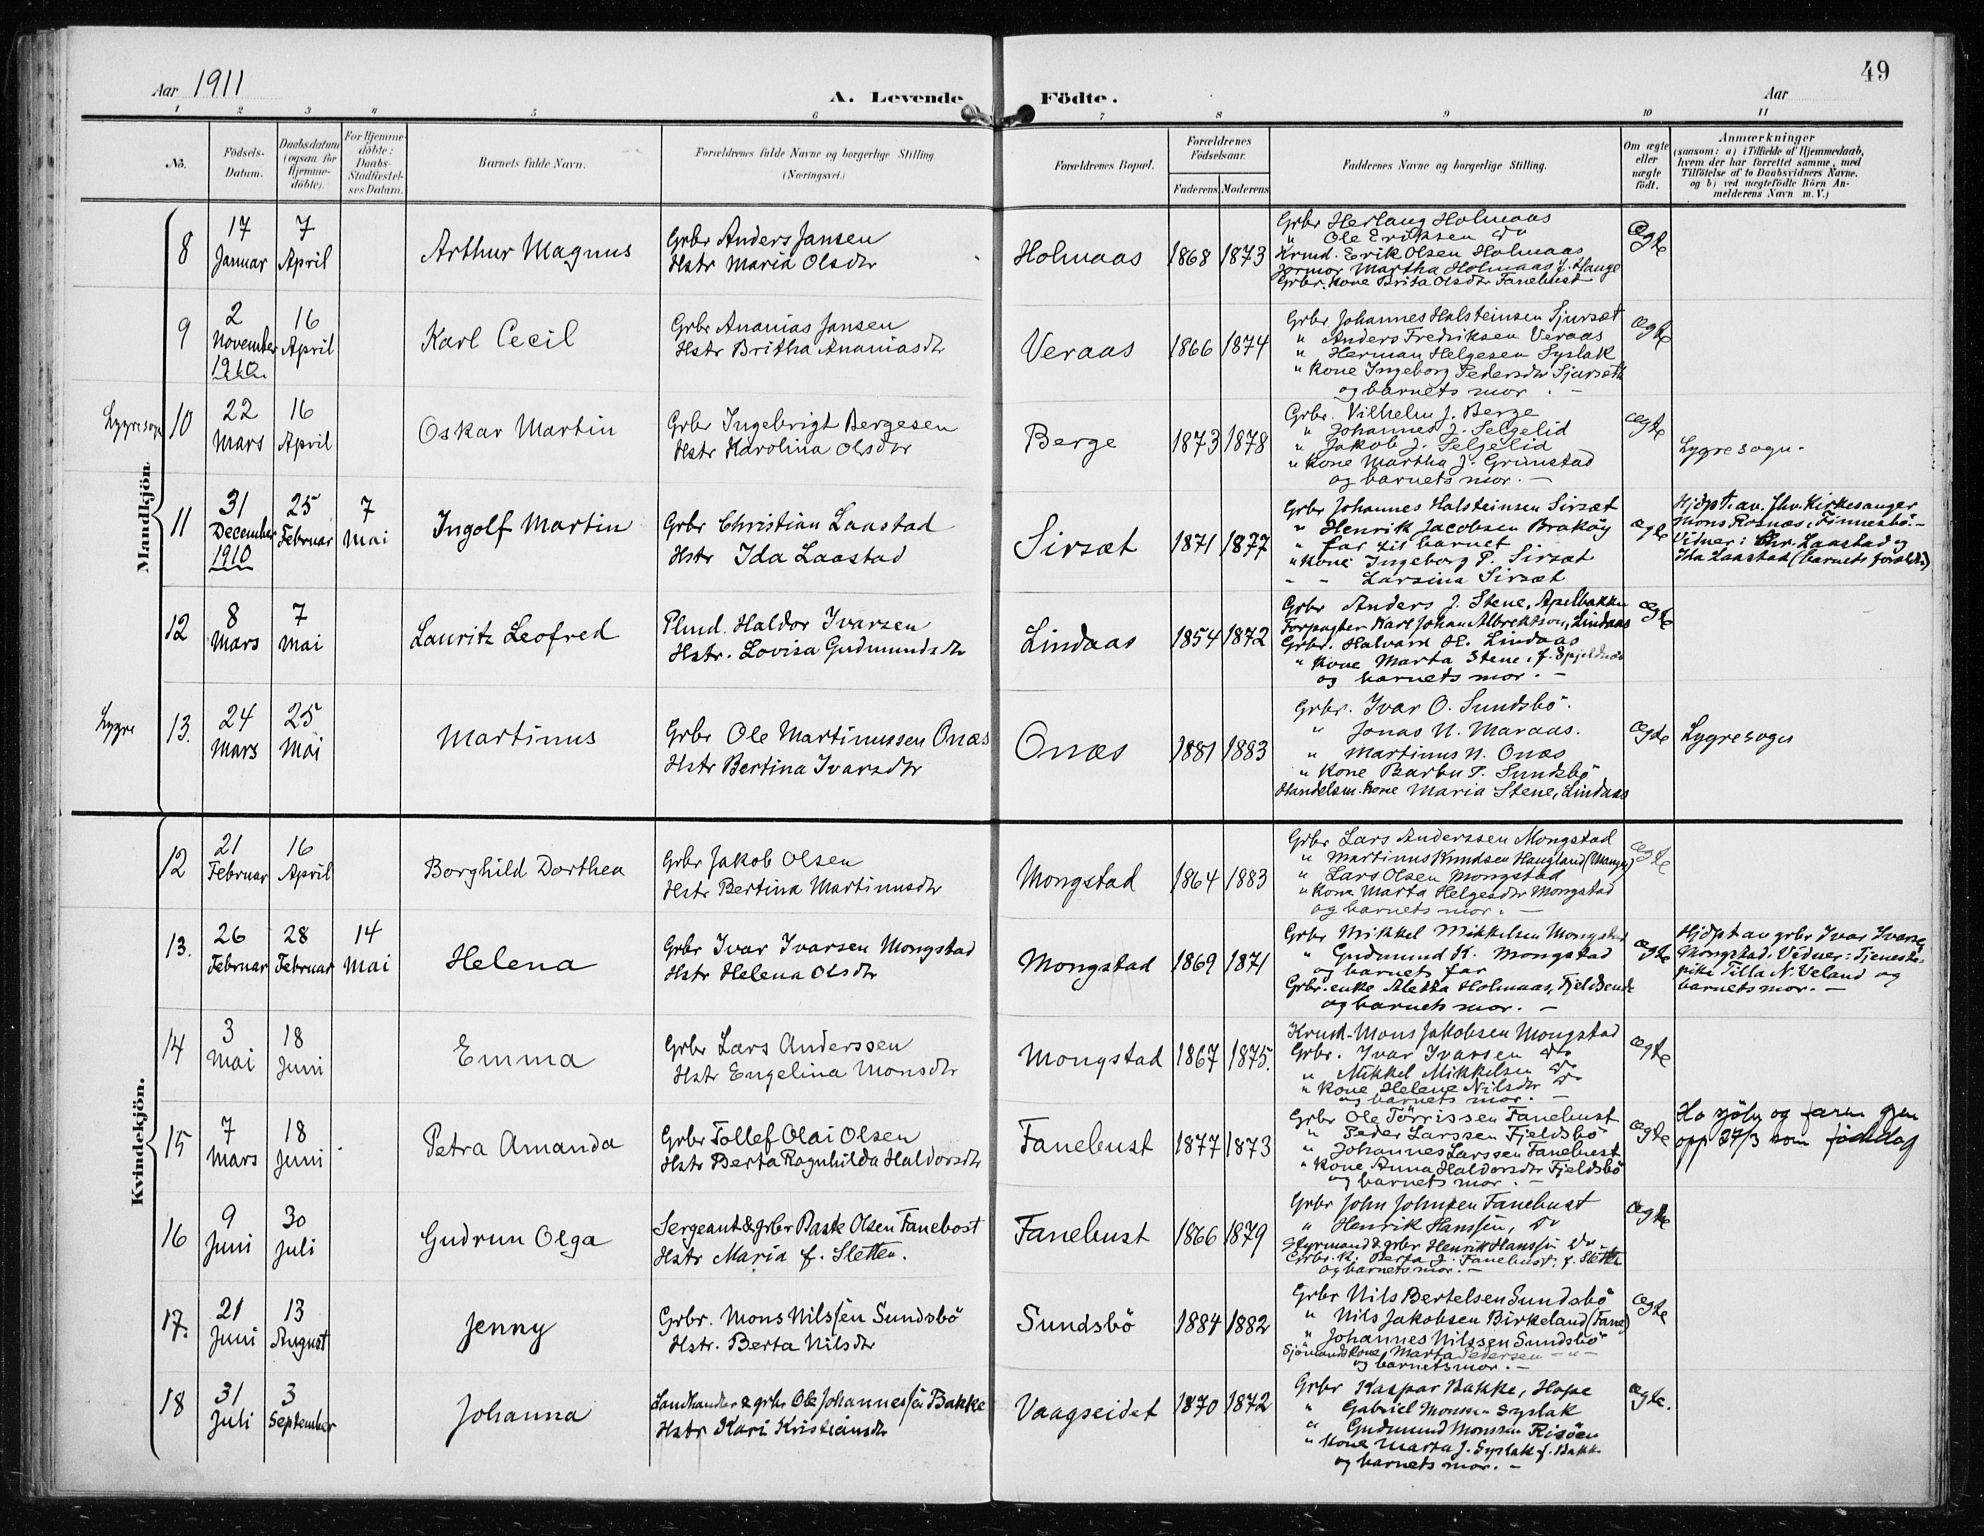 49
Aar 1911
A. Levende Födte.
Aar
1 2 3 4 5 6 7 8 9 10 11
No.
Födsels-Datum.
Daabsdatum (ogsaa for Hjemme-döbte).
For Hjemme-döbte: Daabs-Stadfæstel-ses Datum.
Barnets fulde Navn.
Forældrenes fulde Navne og borgerlige Stilling.
(Næringsvei.)
Forældrenes Bopæl.
Forældrenes Födselsaar.
Faderens Moderens
Faddernes Navne og borgerlige Stilling.
Om ægte eller uægte födt.
Anmærkninger
(saasom: a) i Tilfælde af Hjemmedaab,
hvem der har forrettet samme, med
Tilföielse af to Daabsvidners Navne,
og b) ved uægtefödte Börn An-
melderens Navn m. V.)
Mandkjön.
8
17 Januar
7 April
Arthur Magnus
Grbr Anders Jansen
Hstr Maria Olsdtr
Holmaas
1868 1873
Grbr Herlaug Holmaas
" Ole Eriksen do
Krmd. Erik Olsen Holmaas
Jormor Martha Holmaas f. Hauge
Grbr. kone Brita Olsdtr Fanebust
Ægte
9
2 November 1910.
16 April
Karl Cecil
Grbr Ananias Jansen
Hstr Britha Ananiasdtr
Veraas
1866 1874
Grbr Johannes Halsteinsen Sjursæt
" Anders Fredriksen Veraas
" Herman Helgesen Syslak
" kone Ingeborg Pedersdtr Sjursæth
og barnets mor. -
ægte
Lygre sogn
10
22 Mars
16 April
Oskar Martin
Grbr Ingebrigt Bergesen
Hstr Karolina Olsdtr
Berge
1873 1878
Grbr. Vilhelm J. Berge
" Johannes J. Selgelid
" Jakob J. Selgelid
" kone Martha J. Grimstad
og barnets mor. -
ægte
Lygre sogn.
11
31 December 1910
25 Februar
7 Mai
Ingolf Martin
Grbr Christian Laastad
Hstr Ida Laastad
Sirsæt
1871 1877
Grbr Johannes Halsteinsen Sirsæt
" Henrik Jacobsen Brakøy
" far til barnet
" kone Ingeborg P. Sirsæt
- - Larsina Sirsæt
ægte
Hjdpt. av fhv. Kirkesanger
Mons Rosnæs, Finnesbö.-
Vidner: Chr. Laastad og
Ida Laastad (barnets foræld.)
12
8 Mars
7 Mai
Lauritz Leofred
Plmd. Haldor Ivarsen
Hstr. Lovisa Gudmundsdtr
Lindaas
1854 1872
Grbr Anders J. Stene, Apelbakken
Forpagter Karl Johan Albrektsen, Lindaas
Grbr. Halvard H. Lindaas
" kone Marta Stene, f. Spjeldnæs
og barnets mor. -
ægte
Lygre
13.
24 Mars
25 Mai
Martinus
Grbr Ole Martinussen Onæs
Hstr Bertina Ivarsdtr
Onæs
1881 1883
Grbr. Ivar O. Sundsbö.
" Jonas N. Maraas.
" Martinus N. Onæs
" kone Barbu P. Sundsbö
Handelsm. kone Maria Stene, Lindaas
ægte
Lygre sogn
Kvindekjön.
12
21 Februar
16 April
Borghild Dorthea
Grbr Jakob Olsen
Hstr Bertina Martinusdtr
Mongstad
1864 1883
Grbr Lars Anderssen Mongstad
" Martinus Knudsen Haugland (Manger)
" Lars Olsen Mongstad
" kone Marta Helgesdtr Mongstad
og barnets mor. -
ægte
13.
26 Februar
28 Februar
14 Mai
Helena
Grbr Ivar Ivarsen Mongstad
Hstr Helena Olsdtr
Mongstad
1869 1871
Grbr Mikkel Mikkelsen Mongstad
" Gudmund K. Mongstad
og barnets far
Grbr. enke Aletta Holmaas, Fjeldsende
og barnets mor. -
ægte
Hjdpt av grbr Ivar Ivarsen
Mongstad. Vidner: Tjeneste-
pike Tilla N. Veland og
barnets mor. -
14
3 Mai
18 Juni
Emma
Grbr Lars Anderssen
Hstr Engelina Monsdtr
Mongstad
1867 1875.
Krmd. Mons Jakobsen Mongstad
Grbr. Ivar Ivarsen do
" Mikkel Mikkelsen do
" kone Helene Nilsdtr do
og barnets mor. -
ægte
15
7 Mars
18 Juni
Petra Amanda
Grbr Tollef Olai Olsen
Hstr Berta Ragnhilda Haldorsdtr
Fanebust
1877 1873
Grbr Ole Törrissen Fanebust
" Peder Larssen Fjeldsbö
" Johannes Larssen Fanebust
" kone Anna Haldorsdtr Fjeldsbö
og barnets mor. -
ægte
Ho sjölv og faren gjev
opp 27/3 som födedag
16
9 Juni
30 Juli
Gudrun Olga
Sergeant & grbr Bask Olsen Fanebost
Hstr Maria f. Sletten.
Fanebust
1866 1879
Grbr John Johnsen Fanebust
" Henrik Hanssen, do
Styrmand & grbr Henrik Hanssen do
Grbr. k. Berta J. Fanebust, f. Slette
og barnets mor. -
ægte
17.
21 Juni
13 August
Jenny
Grbr. Mons Nilssen Sundsbö
Hstr. Berta Nilsdtr
Sundsbö
1884 1882
Grbr Nils Bertelsen Sundsbö
" Nils Jakobsen Birkeland (Fane)
" Johannes Nilssen Sundsbö
Sjömandskone Marta Pedersen - " -
og barnets mor. -
ægte
18
31 Juli
3 September
Johanna
Landhandler & grbr Ole Johannessen Bakke
Hstr Kari Kristiansdtr
Vaagseidet
1870 1872
Grbr Kaspar Bakke, Hope
" Gabriel Monsen Syslak
" Gudmund Monssen Risöen
" kone Marta J. Syslak f. Bakk
og barnets mor. -
ægte.